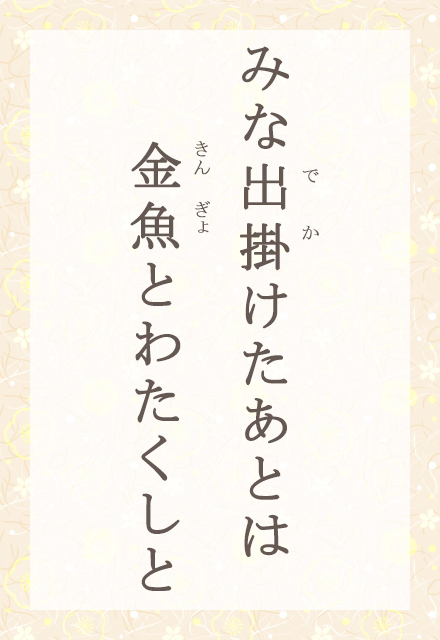 みな出掛けたあとは
金魚とわたくしと
でか
きんぎょ